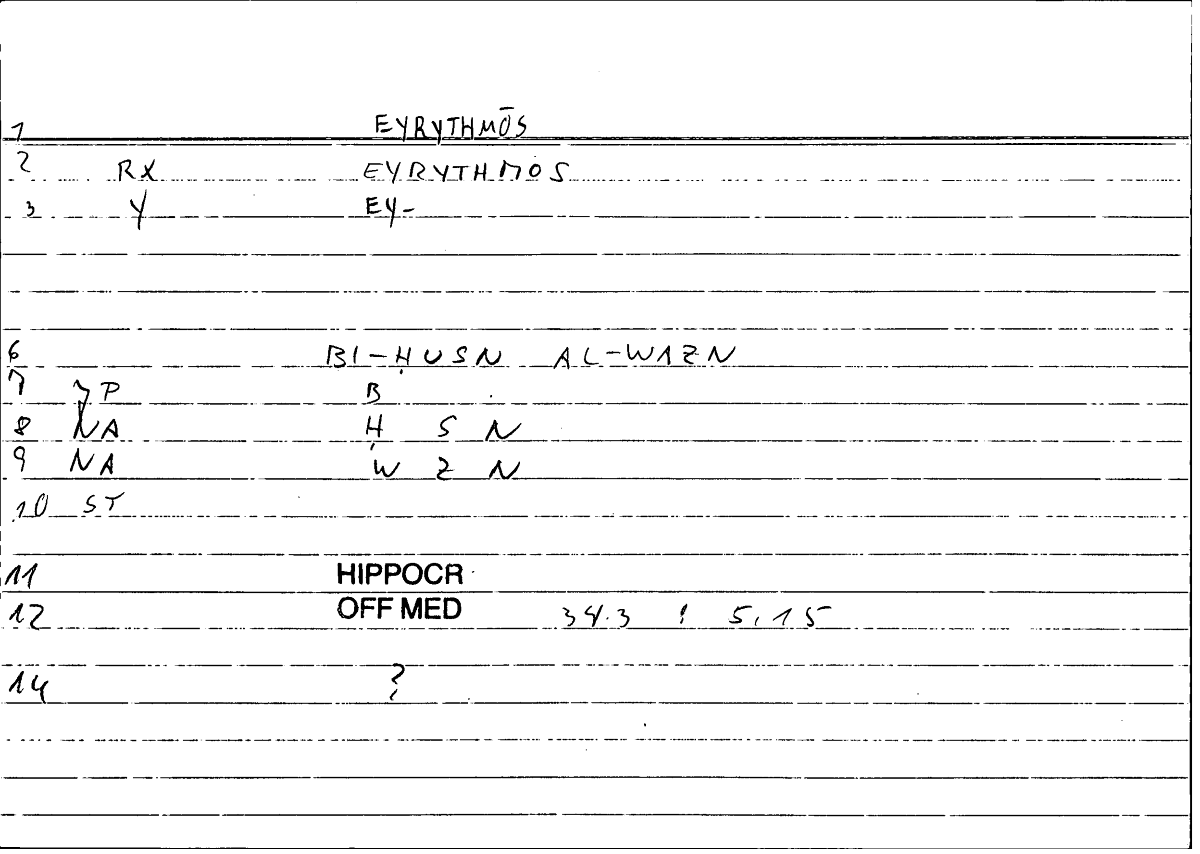 1 EYRYTHMŌS
2 RX EYRYTHMOS
3 Y EY-
6 BI-ḤUSN AL-WAZN
7 JP B
8 NA Ḥ S N
9 NA W Z N
10 ST
11 HIPPOCR
12 OFF MED 34.3 ! 5,15
14 ?